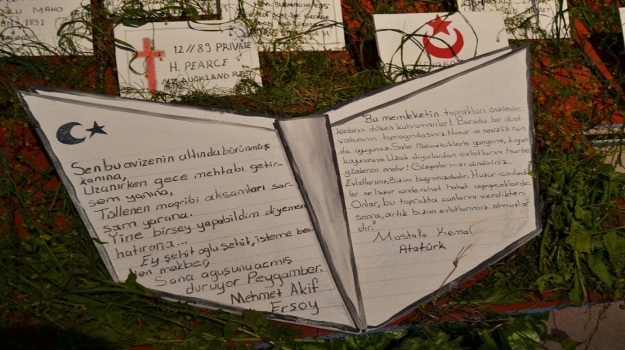 MAHO
1891
12//89 PRIVATE
H. PEARCE
NZ. AUCKLAND RE
Sen bu avizenin altında bürünmüş
kanına,
Uzanırken gece mehtabı getir-
sem yanına,
Tüllenen magribi akşamları sar-
sam yarana.
Yine birsey yapabildim diyemem
hatırana...
Ey şehit oglu şehit, isteme ben-
den makber,
Sana agusunu açmış
duruyor Peygamber.
Mehmet Akif
Ersoy
Bu memleketin toprakları üstünde
kanlarını döken kahramanlar! Burada bir dost
vatanının toprağındasınız. Huzur ve sessizlik için-
de uyuyunuz. Sizler Mehmetciklerle yanyana, koyun
koyunasınız. Uzak diyarlardan evlatlarını harbe
gönderen analar! Gözyaşlarınızı dindiriniz.
Evlatlarınız, Bizim bağrımızdadır. Huzur içinde-
ler ve huzur içinde rahat uyuyacaklardır.
Onlar, bu toprakta canlarını verdikten
sonra, artık bizim evlatlarımız olmuşlar-
dır."
Mustafa Kemal
Atatürk